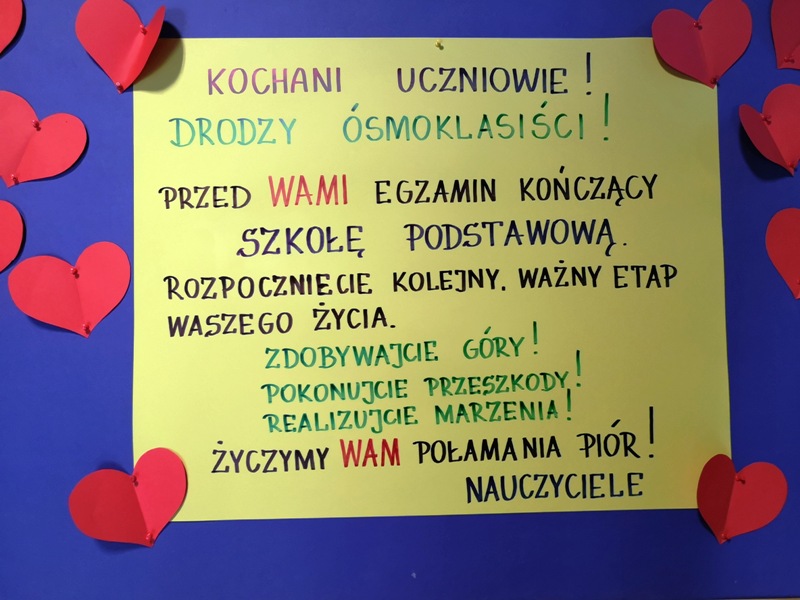 KOCHANI UCZNIOWIE!
DRODZY ÓSMOKLASIŚCI!
PRZED WAMI EGZAMIN KOŃCZĄCY
SZKOŁĘ PODSTAWOWĄ.
ROZPOCZNIECIE KOLEJNY, WAŻNY ETAP
WASZEGO ŻYCIA.
ZDOBYWAJCIE GÓRY!
POKONUJCIE PRZESZKODY!
REALIZUJCIE MARZENIA!
ŻYCZYMY WAM POŁAMANIA PIÓR!
NAUCZYCIELE